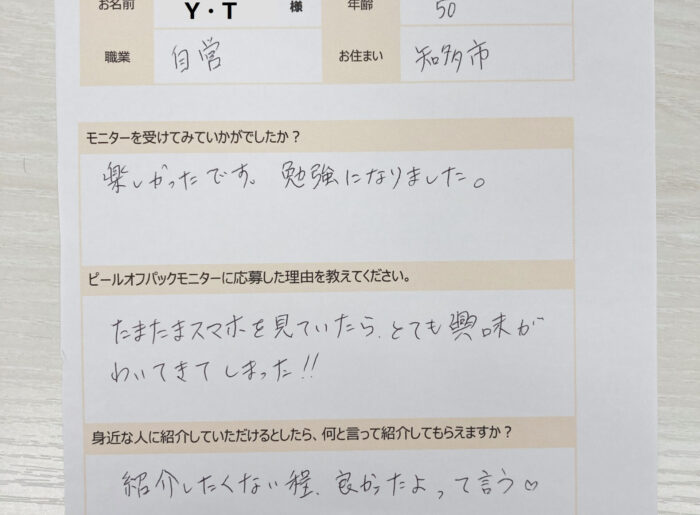 お名前 Y・T 様 年齢 50
職業 自営 お住まい 知多市
モニターを受けてみていかがでしたか？
楽しかったです。勉強になりました。
ピールオフパックモニターに応募した理由を教えてください。
たまたまスマホを見ていたら、とても興味が
わいてきてしまった!!
身近な人に紹介していただけるとしたら、何と言って紹介してもらえますか？
紹介したくない程、良かったよって言う♡